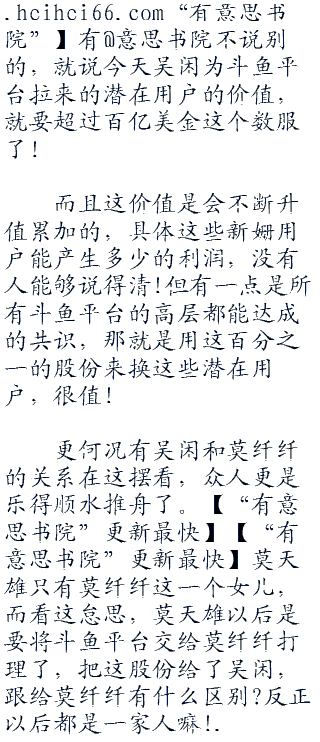 .hcihci66.com“有意思书
院”】有@意思书院不说别
的，就说今天吴闲为斗鱼平
台拉来的潜在用户的价值，
就要超过百亿美金这个数服
了！
而且这价值是会不断升
值累加的，具体这些新姗用
户能产生多少的利润，没有
人能够说得清!但有一点是所
有斗鱼平台的高层都能达成
的共识，那就是用这百分之
一的股份来换这些潜在用
户，很值！
更何况有吴闲和莫纤纤
的关系在这摆看，众人更是
乐得顺水推舟了。【“有意
思书院”更新最快】【“有
意思书院”更新最快】莫天
雄只有莫纤纤这一个女儿，
而看这怠思，莫天雄以后是
要将斗鱼平台交给莫纤纤打
理了，把这股份给了吴闲，
跟给莫纤纤有什么区别?反正
以后都是一家人嘛!.